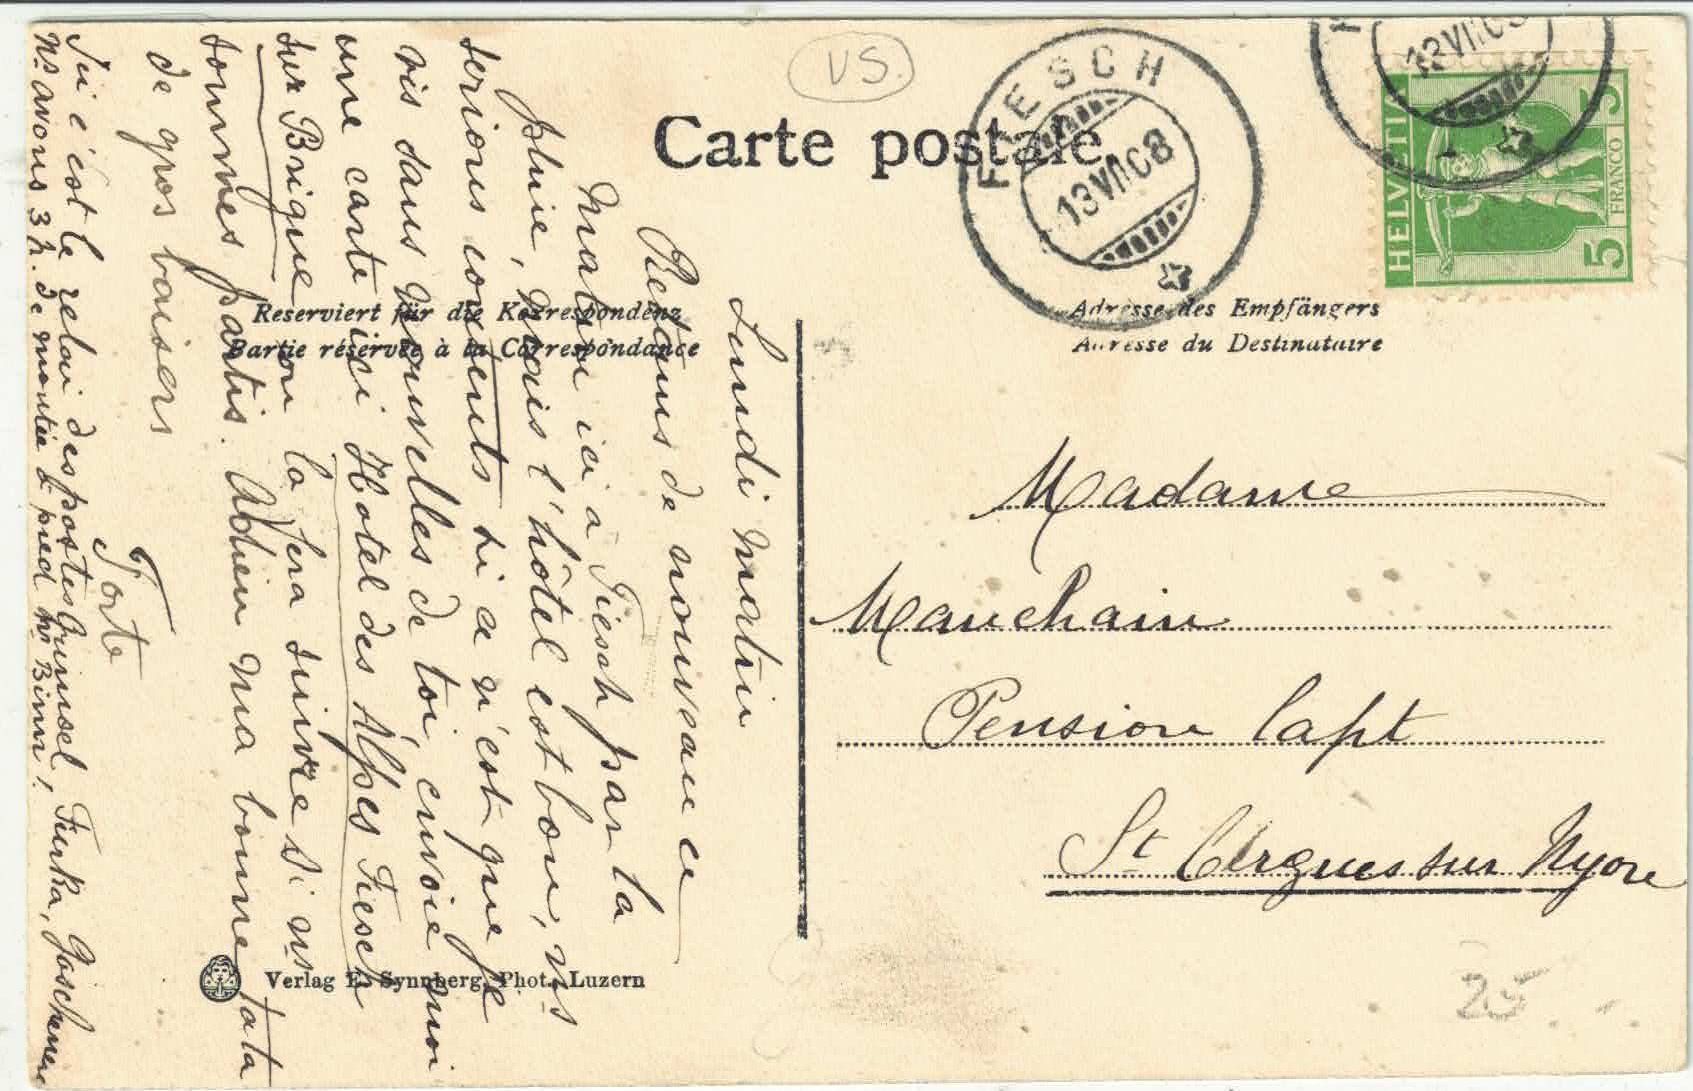 Carte postale
VS.
FIESCH
13 VII 08
13 VII 08
HELVETIA
5 5
FRANCO
Reserviert für die Korrespondenz
Partie réservée à la Correspondance
Adresse des Empfängers
Adresse du Destinataire
Lundi matin
Retenus de nouveau ce
matin ici à Fiesch par la
pluie, mais l'hôtel est bon, ns
serions contents si ce n'est que je
vis sans nouvelles de toi, envoie moi
une carte ici Hotel des Alpes Fiesch
sur Brigue on la fera suivre si ns
sommes partis. Adieu ma bonne tata
de gros baisers
Ici c'est le relai des postes Grimsel, Furka, Göschenen
Ns avons 3 h. de montée à pied pr Binn,
Madame
Mauchain
Pension Capt
St Cergues sur Nyon
Verlag E. Synnberg, Phot. Luzern
25